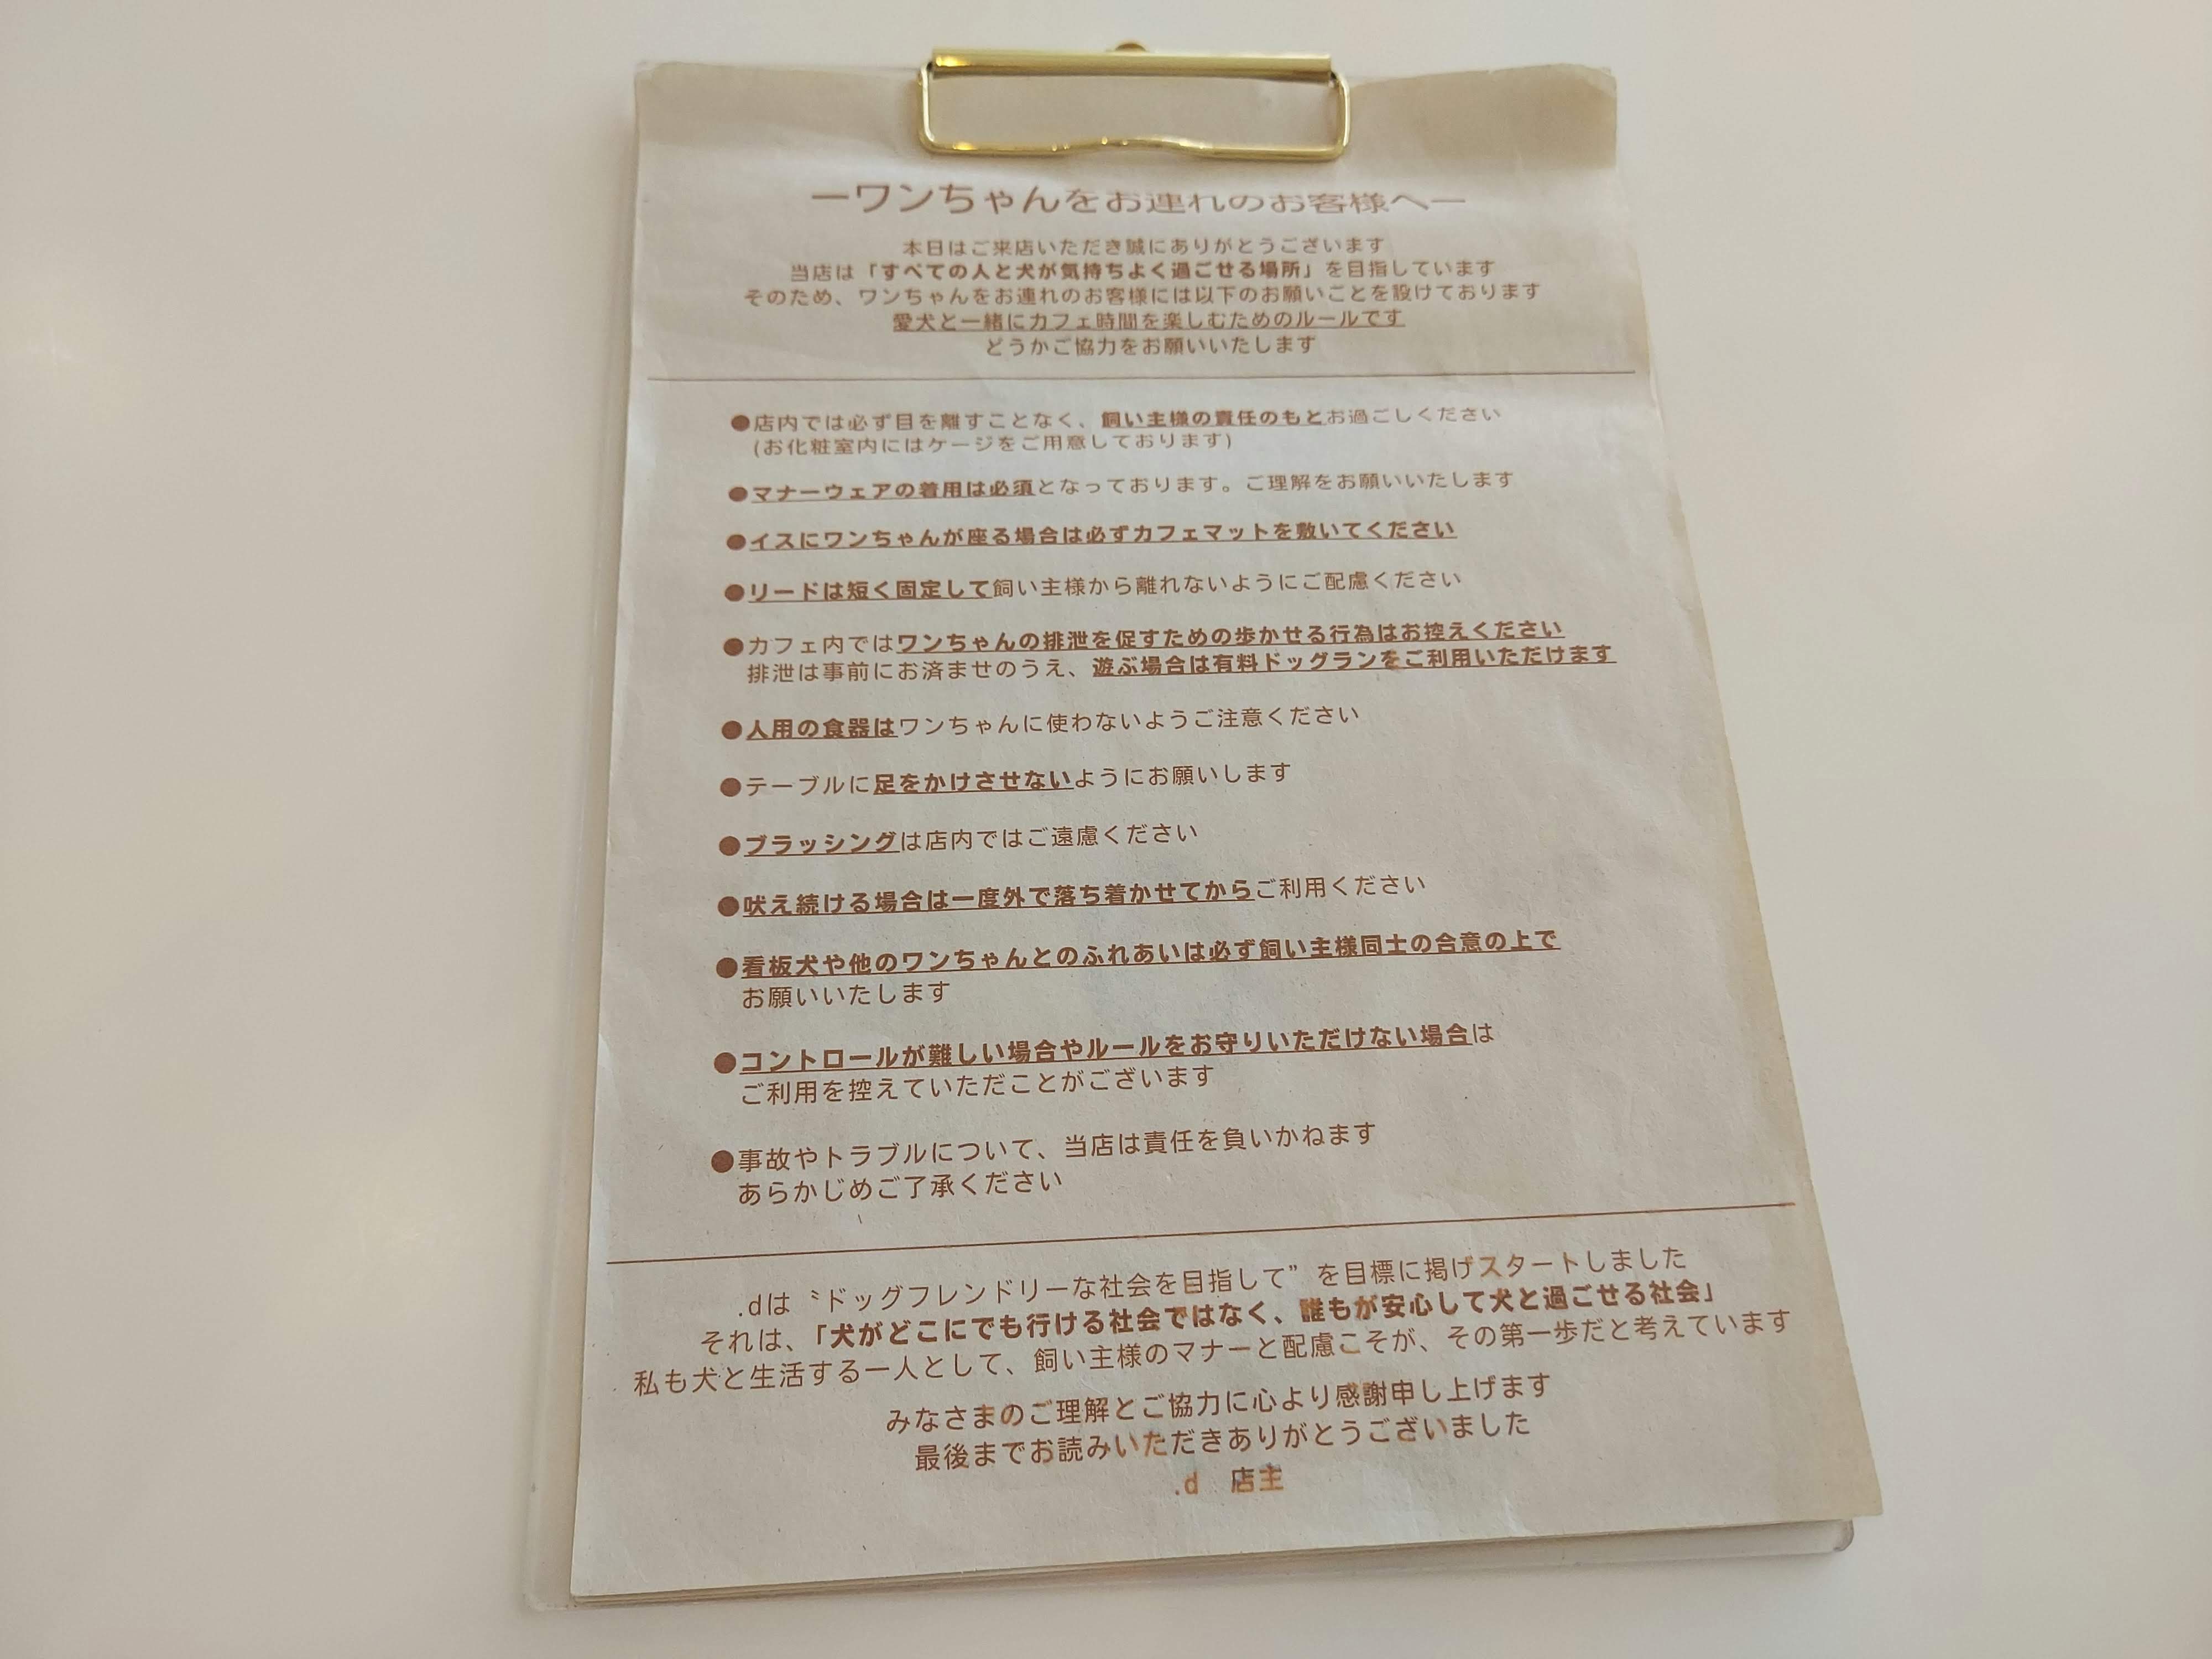 ーワンちゃんをお連れのお客様へー
本日はご来店いただき誠にありがとうございます
当店は「すべての人と犬が気持ちよく過ごせる場所」を目指しています
そのため、ワンちゃんをお連れのお客様には以下のお願いごとを設けております
愛犬と一緒にカフェ時間を楽しむためのルールです
どうかご協力をお願いいたします
●店内では必ず目を離すことなく、飼い主様の責任のもとお過ごしください
(お化粧室内にはケージをご用意しております)
●マナーウェアの着用は必須となっております。ご理解をお願いいたします
●イスにワンちゃんが座る場合は必ずカフェマットを敷いてください
●リードは短く固定して飼い主様から離れないようにご配慮ください
●カフェ内ではワンちゃんの排泄を促すための歩かせる行為はお控えください
排泄は事前にお済ませのうえ、遊ぶ場合は有料ドッグランをご利用いただけます
●人用の食器はワンちゃんに使わないようご注意ください
●テーブルに足をかけさせないようにお願いします
●ブラッシングは店内ではご遠慮ください
●吠え続ける場合は一度外で落ち着かせてからご利用ください
●看板犬や他のワンちゃんとのふれあいは必ず飼い主様同士の合意の上で
お願いいたします
●コントロールが難しい場合やルールをお守りいただけない場合は
ご利用を控えていただことがございます
●事故やトラブルについて、当店は責任を負いかねます
あらかじめご了承ください
.dは〝ドッグフレンドリーな社会を目指して”を目標に掲げスタートしました
それは、「犬がどこにでも行ける社会ではなく、誰もが安心して犬と過ごせる社会」
私も犬と生活する一人として、飼い主様のマナーと配慮こそが、その第一歩だと考えています
みなさまのご理解とご協力に心より感謝申し上げます
最後までお読みいただきありがとうございました
.d 店主